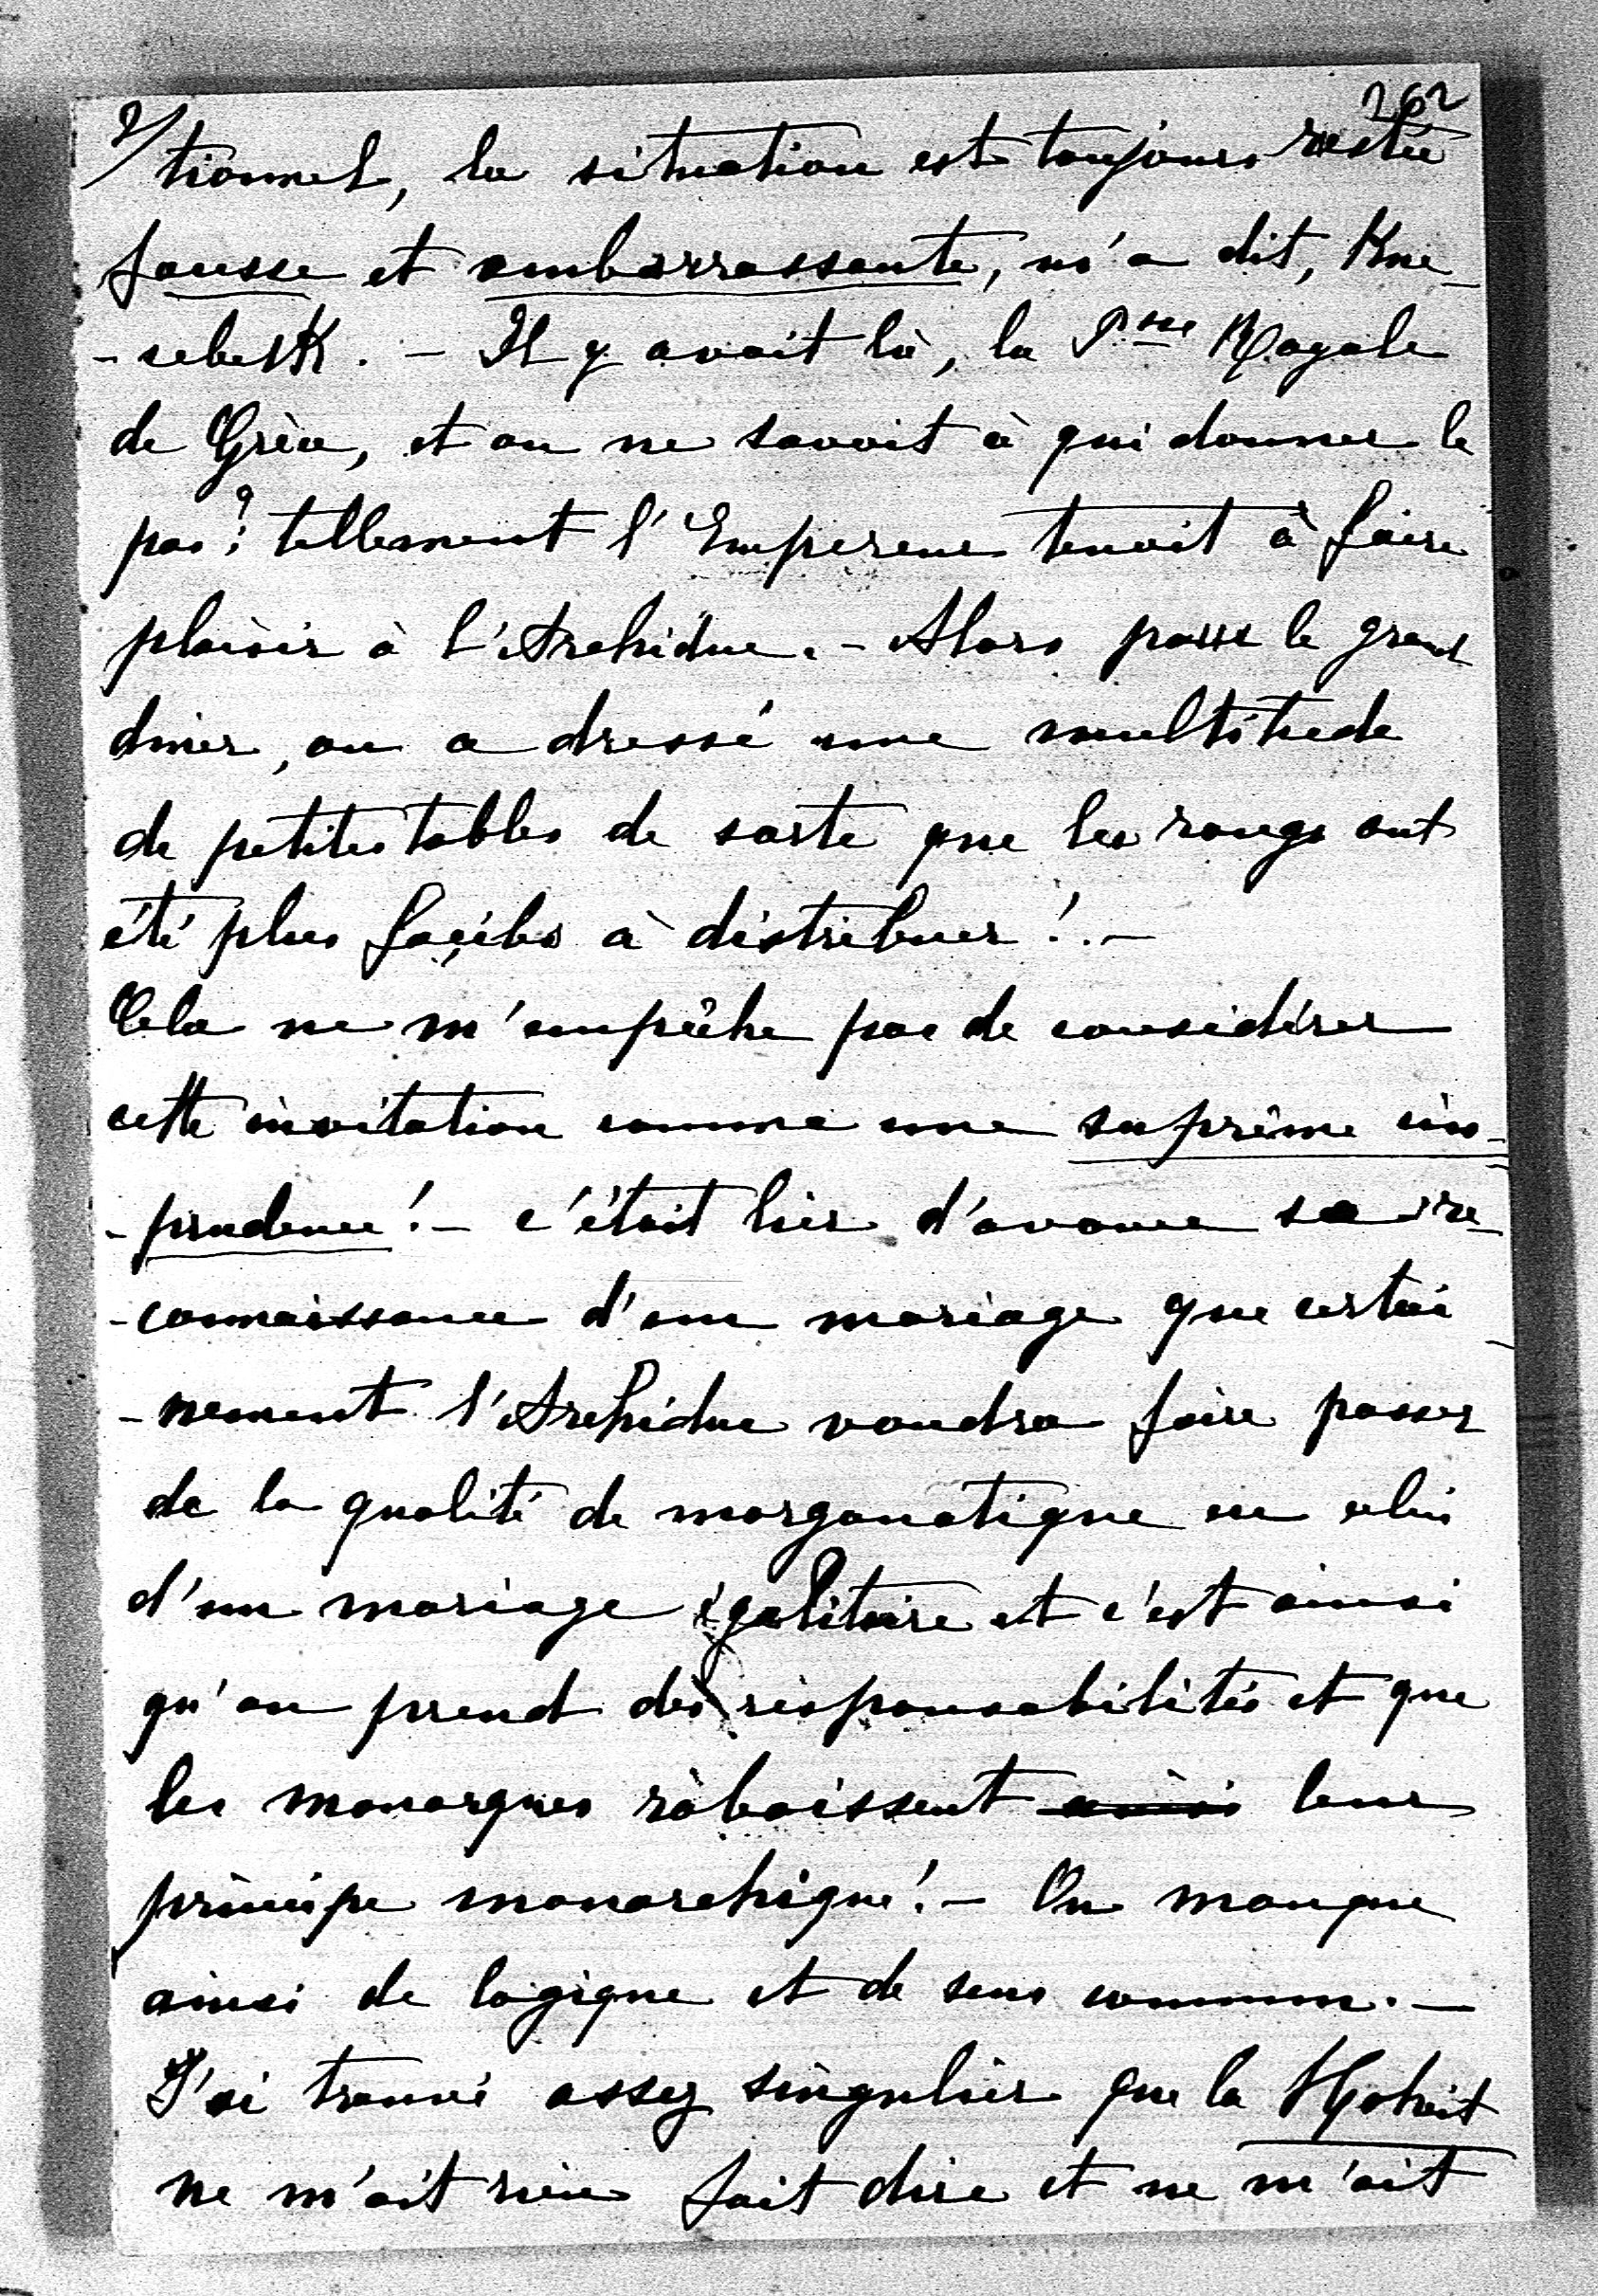 262
2/
tionnel, la situation est toujours restée
fausse et embarrassante, m'a dit, Kne-
-sebeck. - Il y avait là, la Psse Royale
de Grèce, et on ne savait à qui donner le
pas? tellement l'Empereur tenait à faire
plaisir à l'Archiduc. - Alors pour le grand
diner, on a dressé une multitude
de petites tables de sorte que les rangs ont
été plus faciles à distribuer! -
Cela ne m'empêche pas de considérer
cette invitation comme une suprême im-
-prudence! - c'était hier d'avance sa re-
-connaissance d'un mariage que certai-
-nement l'Archiduc voudra faire passer
de la qualité de morganatique en celui
d'un mariage égalitaire et c'est ainsi
qu'on prend des responsabilités et que
les monarques rabaissent ainsi leur
principe monarchique! - On manque
ainsi de logique et de sens commun. -
J'ai trouvé assez singulier que la
ne m'ait rien fait dire et ne m'ait